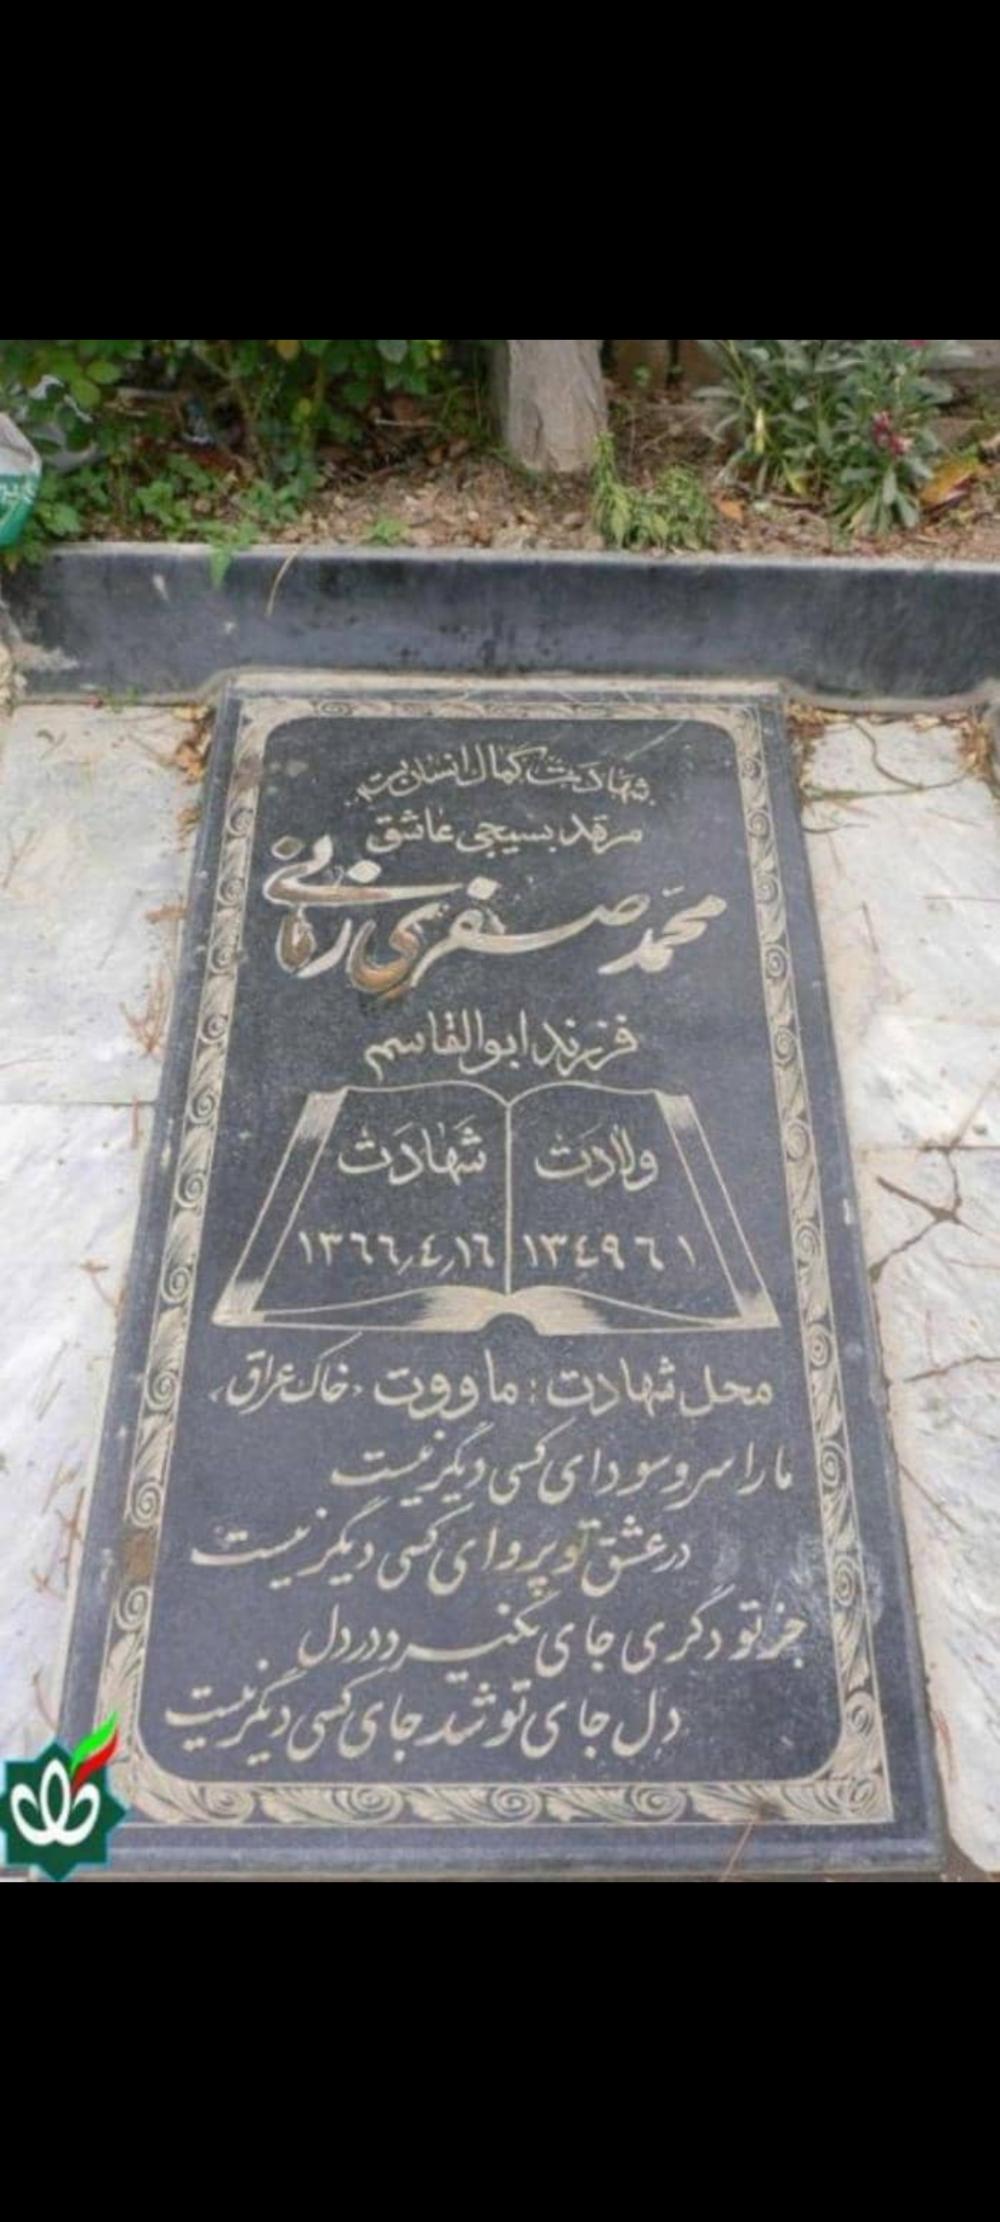 شهادت کمال انسان است
مرقد بسیجی عاشق
محمّد صفری زمانی
فرزند ابوالقاسم
ولادت
۱۳٤۹ ٦ ۱
شهادت
۱۳٦٦٫٤٫۱٦
محل شهادت : ماووت ، خاک عراق ،
ما را سر و سودای کسی دیگر نیست
در عشق تو پروای کسی دیگر نیست
جز تو دگری جای نگیرد در دل
دل جای تو شد جای کسی دیگر نیست